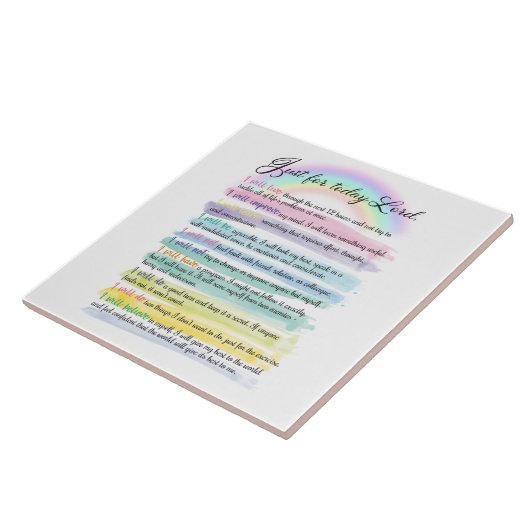 Just for today Lord,
I will live through the next 12 hours and not try to
tackle all of life's problems at once.
I will improve my mind. I will learn something useful.
something that requires effort, thought,
and concentration.
I will be agreeable. I will look my best, speak in a
well modulated voice, be courteous and considerate.
I will not find fault with friend, relative, or colleague.
I will not try to change or improve anyone but myself.
I will have a program. I might not follow it exactly,
but I will have it. I will save myself from two enemies
hurry and indecision.
I will do a good turn and keep it a secret. If anyone
finds out, it won't count.
I will do two things I don't want to do, just for the exercise.
I will believe in myself. I will give my best to the world
and feel confident that the world will give its best to me.